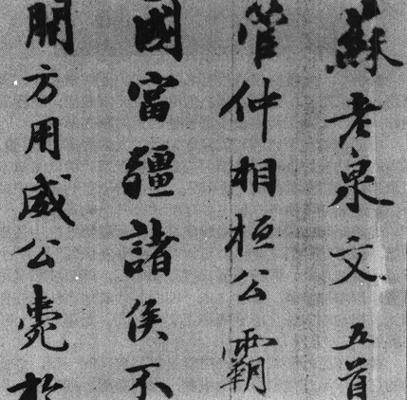 蘇老泉文五首
管仲相桓公霸
國富疆諸侯不
開方用威公薨於